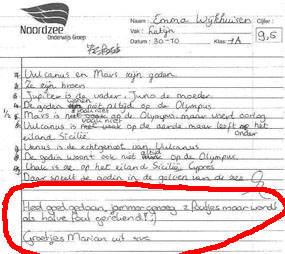 Noordzee
Onderwijs Groep
Naam: Emma Wijkhuisen Cijfer:
Vak: Latijn
9,5
Datum: 30-10 Klas: 1A
Vulcanus en Mars zijn goden
Ze zijn broers
Jupiter is de vader. Juno de moeder.
wonen
De goden niet altijd op de Olympus.
1/2 Mars is niet vaak op de Olympus, maar voert oorlog
Vulcanus is niet vaak op de aarde maar leeft op het
onder
eiland Sicilië
Venus is de echtgenoot van Vulcanus
De godin woont ook niet altijd op de Olympus.
is ze op het eiland Cyprus
Daar speelt de godin in de golven van de zee
Heel goed gedaan, jammer genoeg 2 foutjes maar wordt
als halve fout gerekend! :)
Groetjes Marian uit